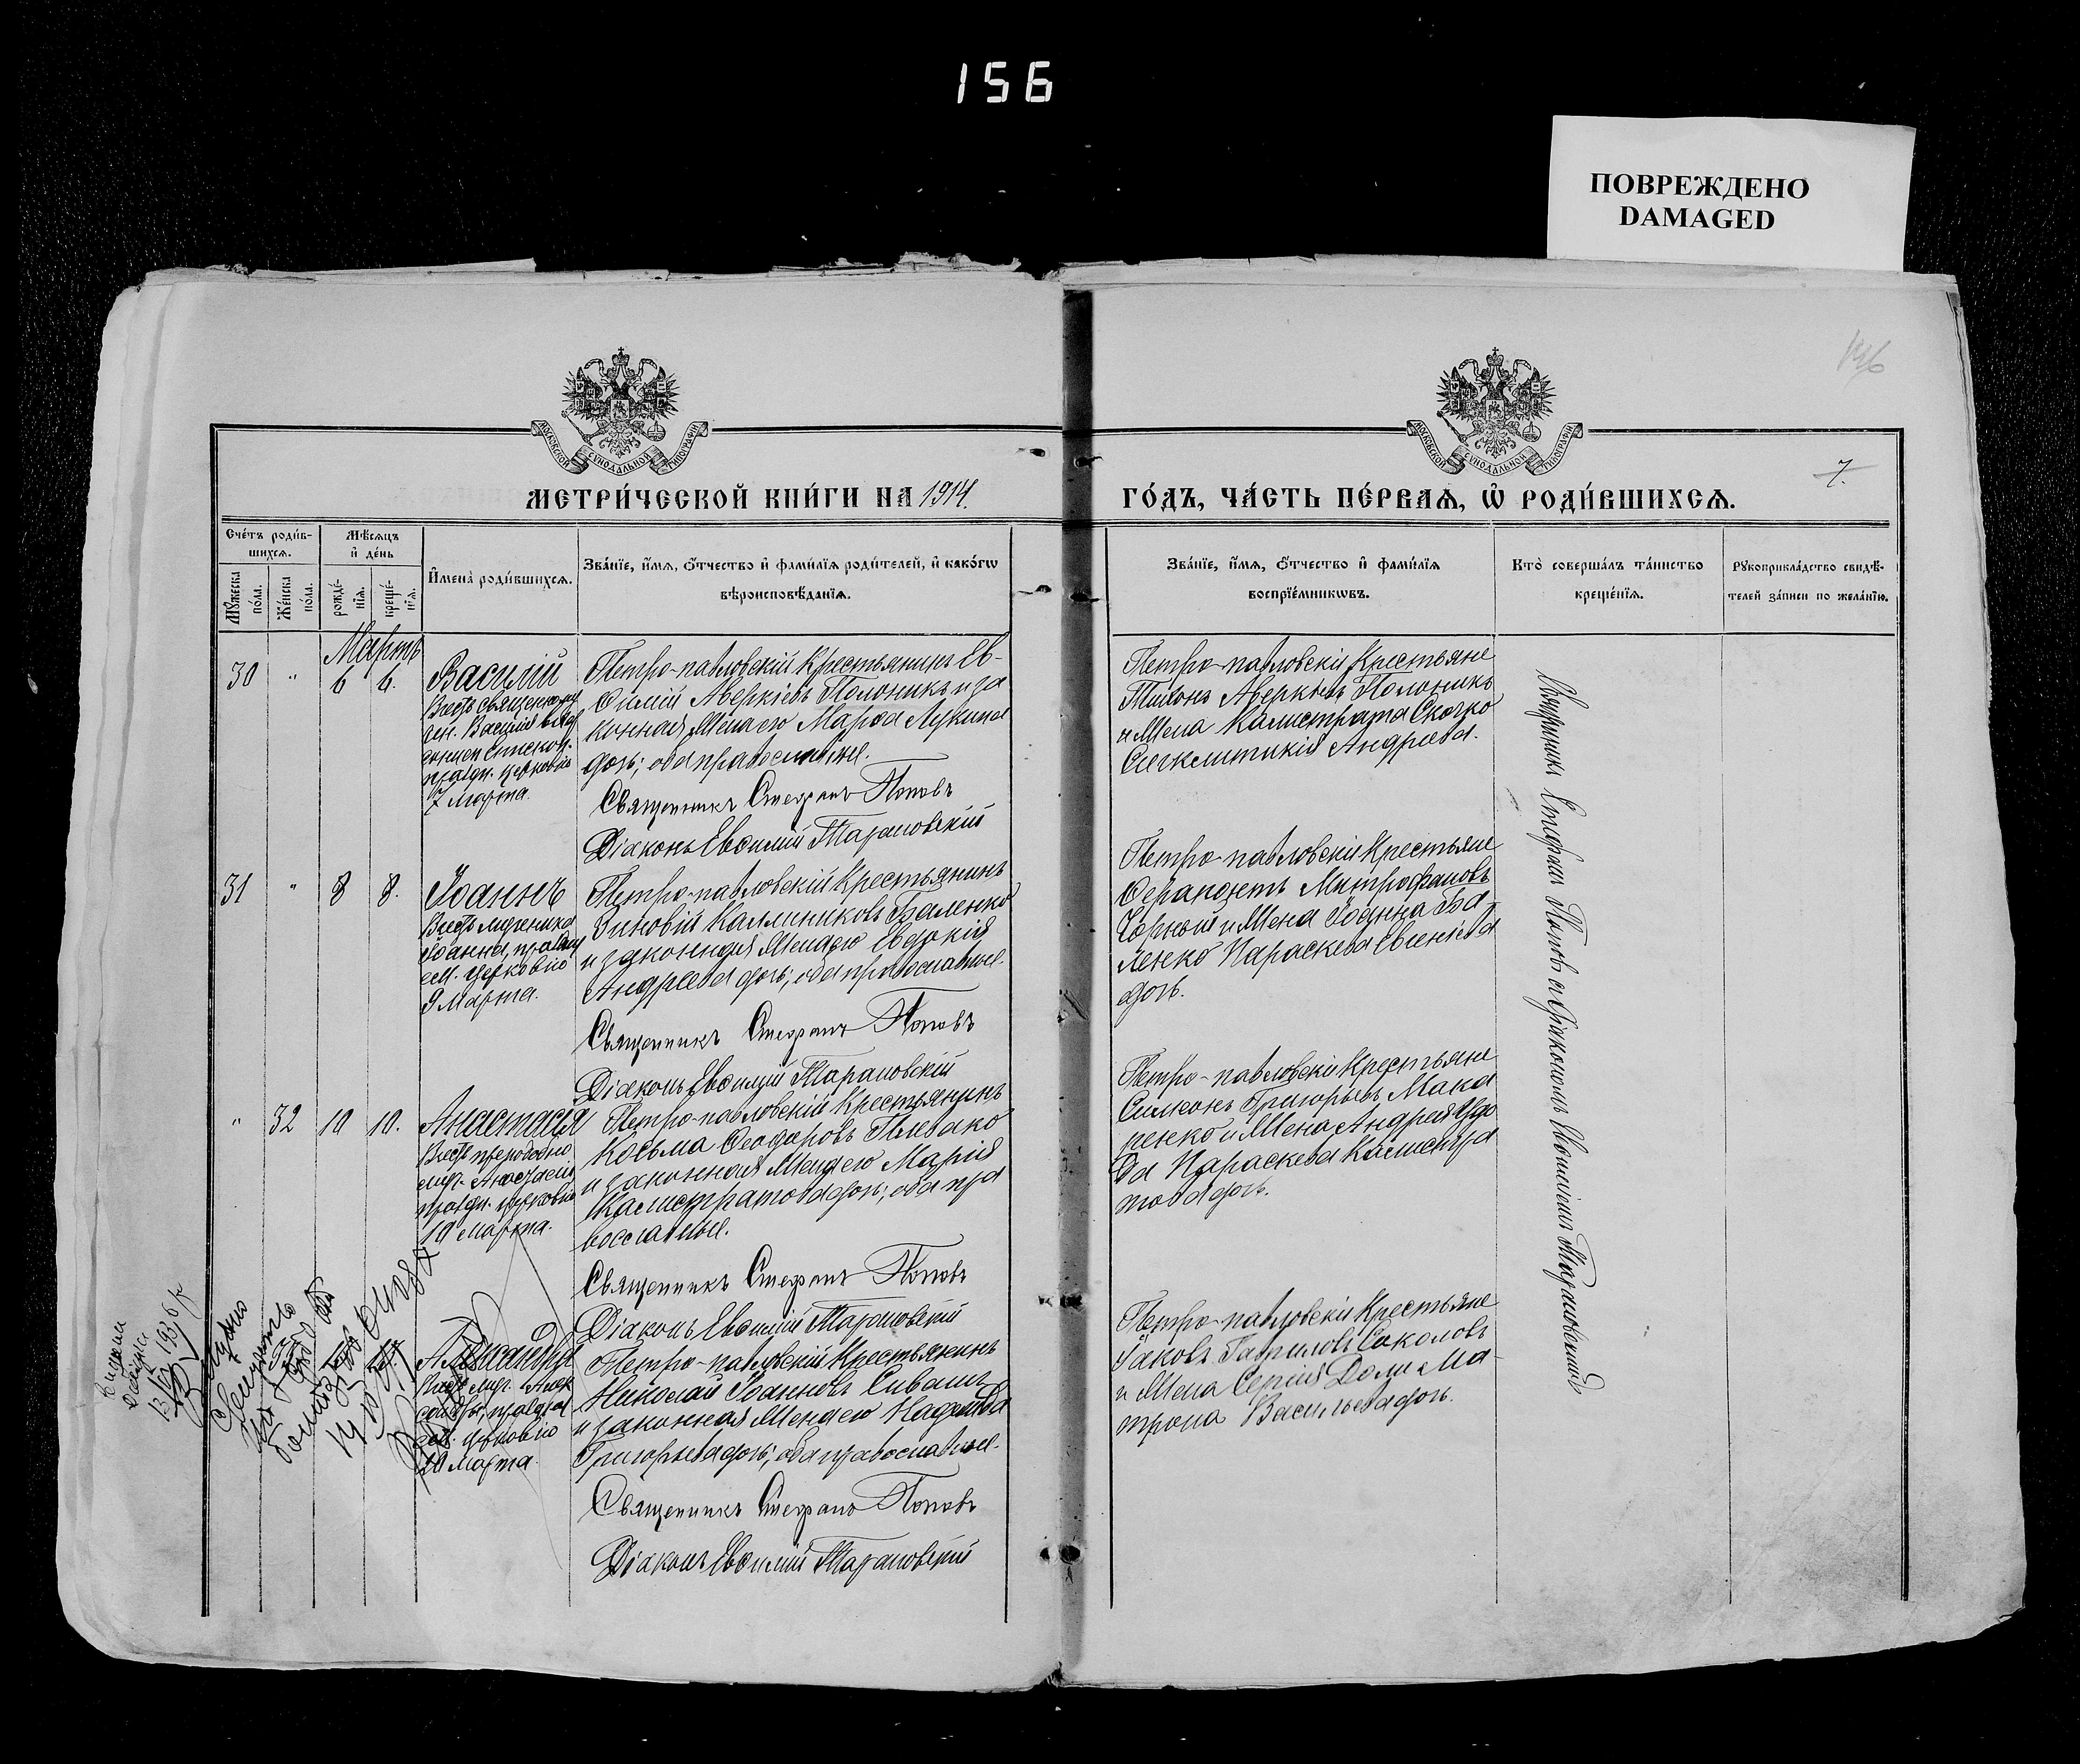 156
ПОВРЕЖДЕНО
DAMAGED
146
7.
МОСКОВСКОЙ СѴНОДАЛЬНОЙ ТИПОГРАФІИ
МОСКОВСКОЙ СѴНОДАЛЬНОЙ ТИПОГРАФІИ
МЕТРИ́ЧЕСКОЙ КНИ́ГИ НА 1914.
ГО́ДЪ, ЧА́СТЬ ПЕ́РВАѦ, Ѡ҆ РОДИ́ВШИХСѦ.
Сче́тъ роди́в-
шихсѧ.
Мꙋ́жеска
по́ла.
Же́нска
по́ла.
Мѣ́сѧцъ
и҆ де́нь
рожде́-
нїѧ.
креще́-
нїѧ.
И҆мена̀ роди́вшихсѧ.
Зва́нїе, и҆́мѧ, ѻ҆́тчество и҆ фами́лїѧ роди́телей, и҆ како́гѡ
вѣроисповѣ́данїѧ.
Зва́нїе, и҆́мѧ, ѻ҆́тчество и҆ фами́лїѧ
воспрїе́мникѡвъ.
Кто̀ соверша́лъ та́инство
креще́нїѧ.
Рꙋкоприкла́дство свидѣ́-
телей за́писи по жела́нїю.
Мартъ
30 " 6 6.
Василій
Въ честь священному
7 марта.
Петро-павловскій Крестьянинъ Ев-
ѳимій Аверкіевъ Полоникъ и за
конная жена его Марѳа Лукина
дочь; оба православные.
Священникъ Стефанъ Поповъ
Діаконъ Евѳимій Тарановскій
Петро-павловскіе Крестьяне
Тихонъ Аверкіевъ Полоникъ
и жена Калистрата Скочко
Сигклитикія Андреева.
31 " 8 8.
Іоаннъ
Въ честь мученика
Іоанна, праздну
ем. церковію
9 марта.
Петро-павловскій Крестьянинъ
Зиновій Каллиниковъ Баленко
и законная жена его Евдокія
Андреева дочь; оба православные.
Священникъ Стефанъ Поповъ
Діаконъ Евѳимій Тарановскій
Петро-павловскіе Крестьяне
Ѳерапонтъ Митрофановъ
Чорный и жена Іоанна Ба-
ленко Параскева Евгеніева
дочь.
" 32 10 10.
Анастасія
Въ честь преподобно
муч. Анастасіи
праздн. церковію
10 марта.
Петро-павловскій Крестьянинъ
Косьма Ѳеодоровъ Плевако
и законная жена его Марія
Калистратова дочь; оба пра
вославные.
Священникъ Стефанъ Поповъ
Діаконъ Евѳимій Тарановскій
Петро-павловскіе Крестьяне
Симеонъ Григорьевъ Мака
ренко и жена Андрея Удо
Параскева Калистра
това дочь.
13/IV 1936 р
Александръ
церковію
20 марта.
Петро-павловскій Крестьянинъ
Николай Іоанновъ Сивашъ
и законная жена его Надежда
Григорьева дочь; оба православные.
Священникъ Стефанъ Поповъ
Діаконъ Евѳимій Тарановскій
Петро-павловскіе Крестьяне
Іаковъ Гавриловъ Соколовъ
и жена Сергія Доли Ма-
трона Васильева дочь.
Священникъ Стефанъ Поповъ съ діакономъ Евѳиміемъ Тарановскимъ